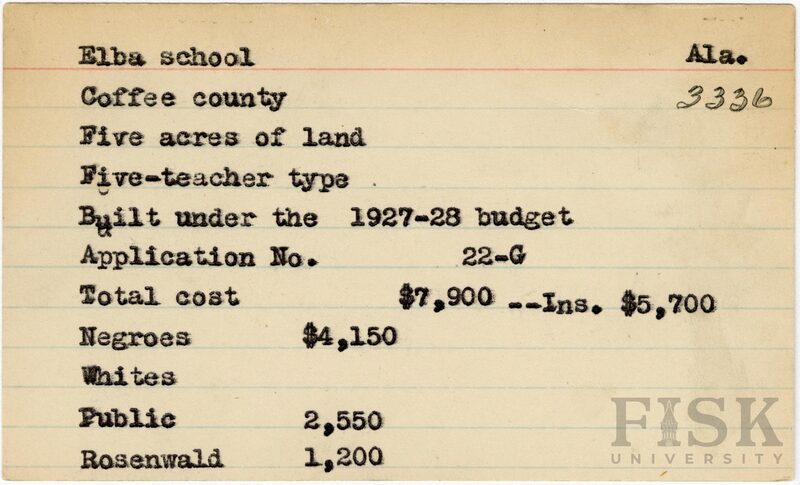 Elba school Ala.
Coffee county 3336
Five acres of land
Five-teacher type
Built under the 1927-28 budget
Application No. 22-G
Total cost $7,900 --Ins. $5,700
Negroes $4,150
Whites
Public 2,550
Rosenwald 1,200
FISK
UNIVERSITY